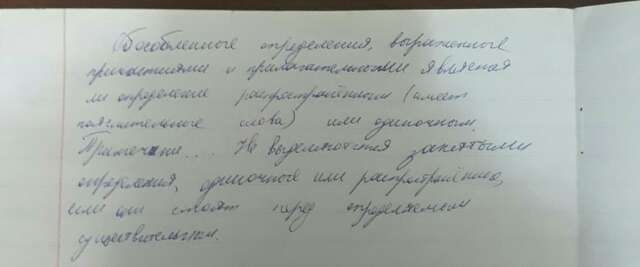 Обособленные определения, выраженные
причастиями и прилагательными Является
ли определение распространённым (имеет
пояснительные слова) или одиночным.
Примечани... Не выделяются запятыми
определения, одиночные или распространённые,
или они стоят перед определяемым
существительным.